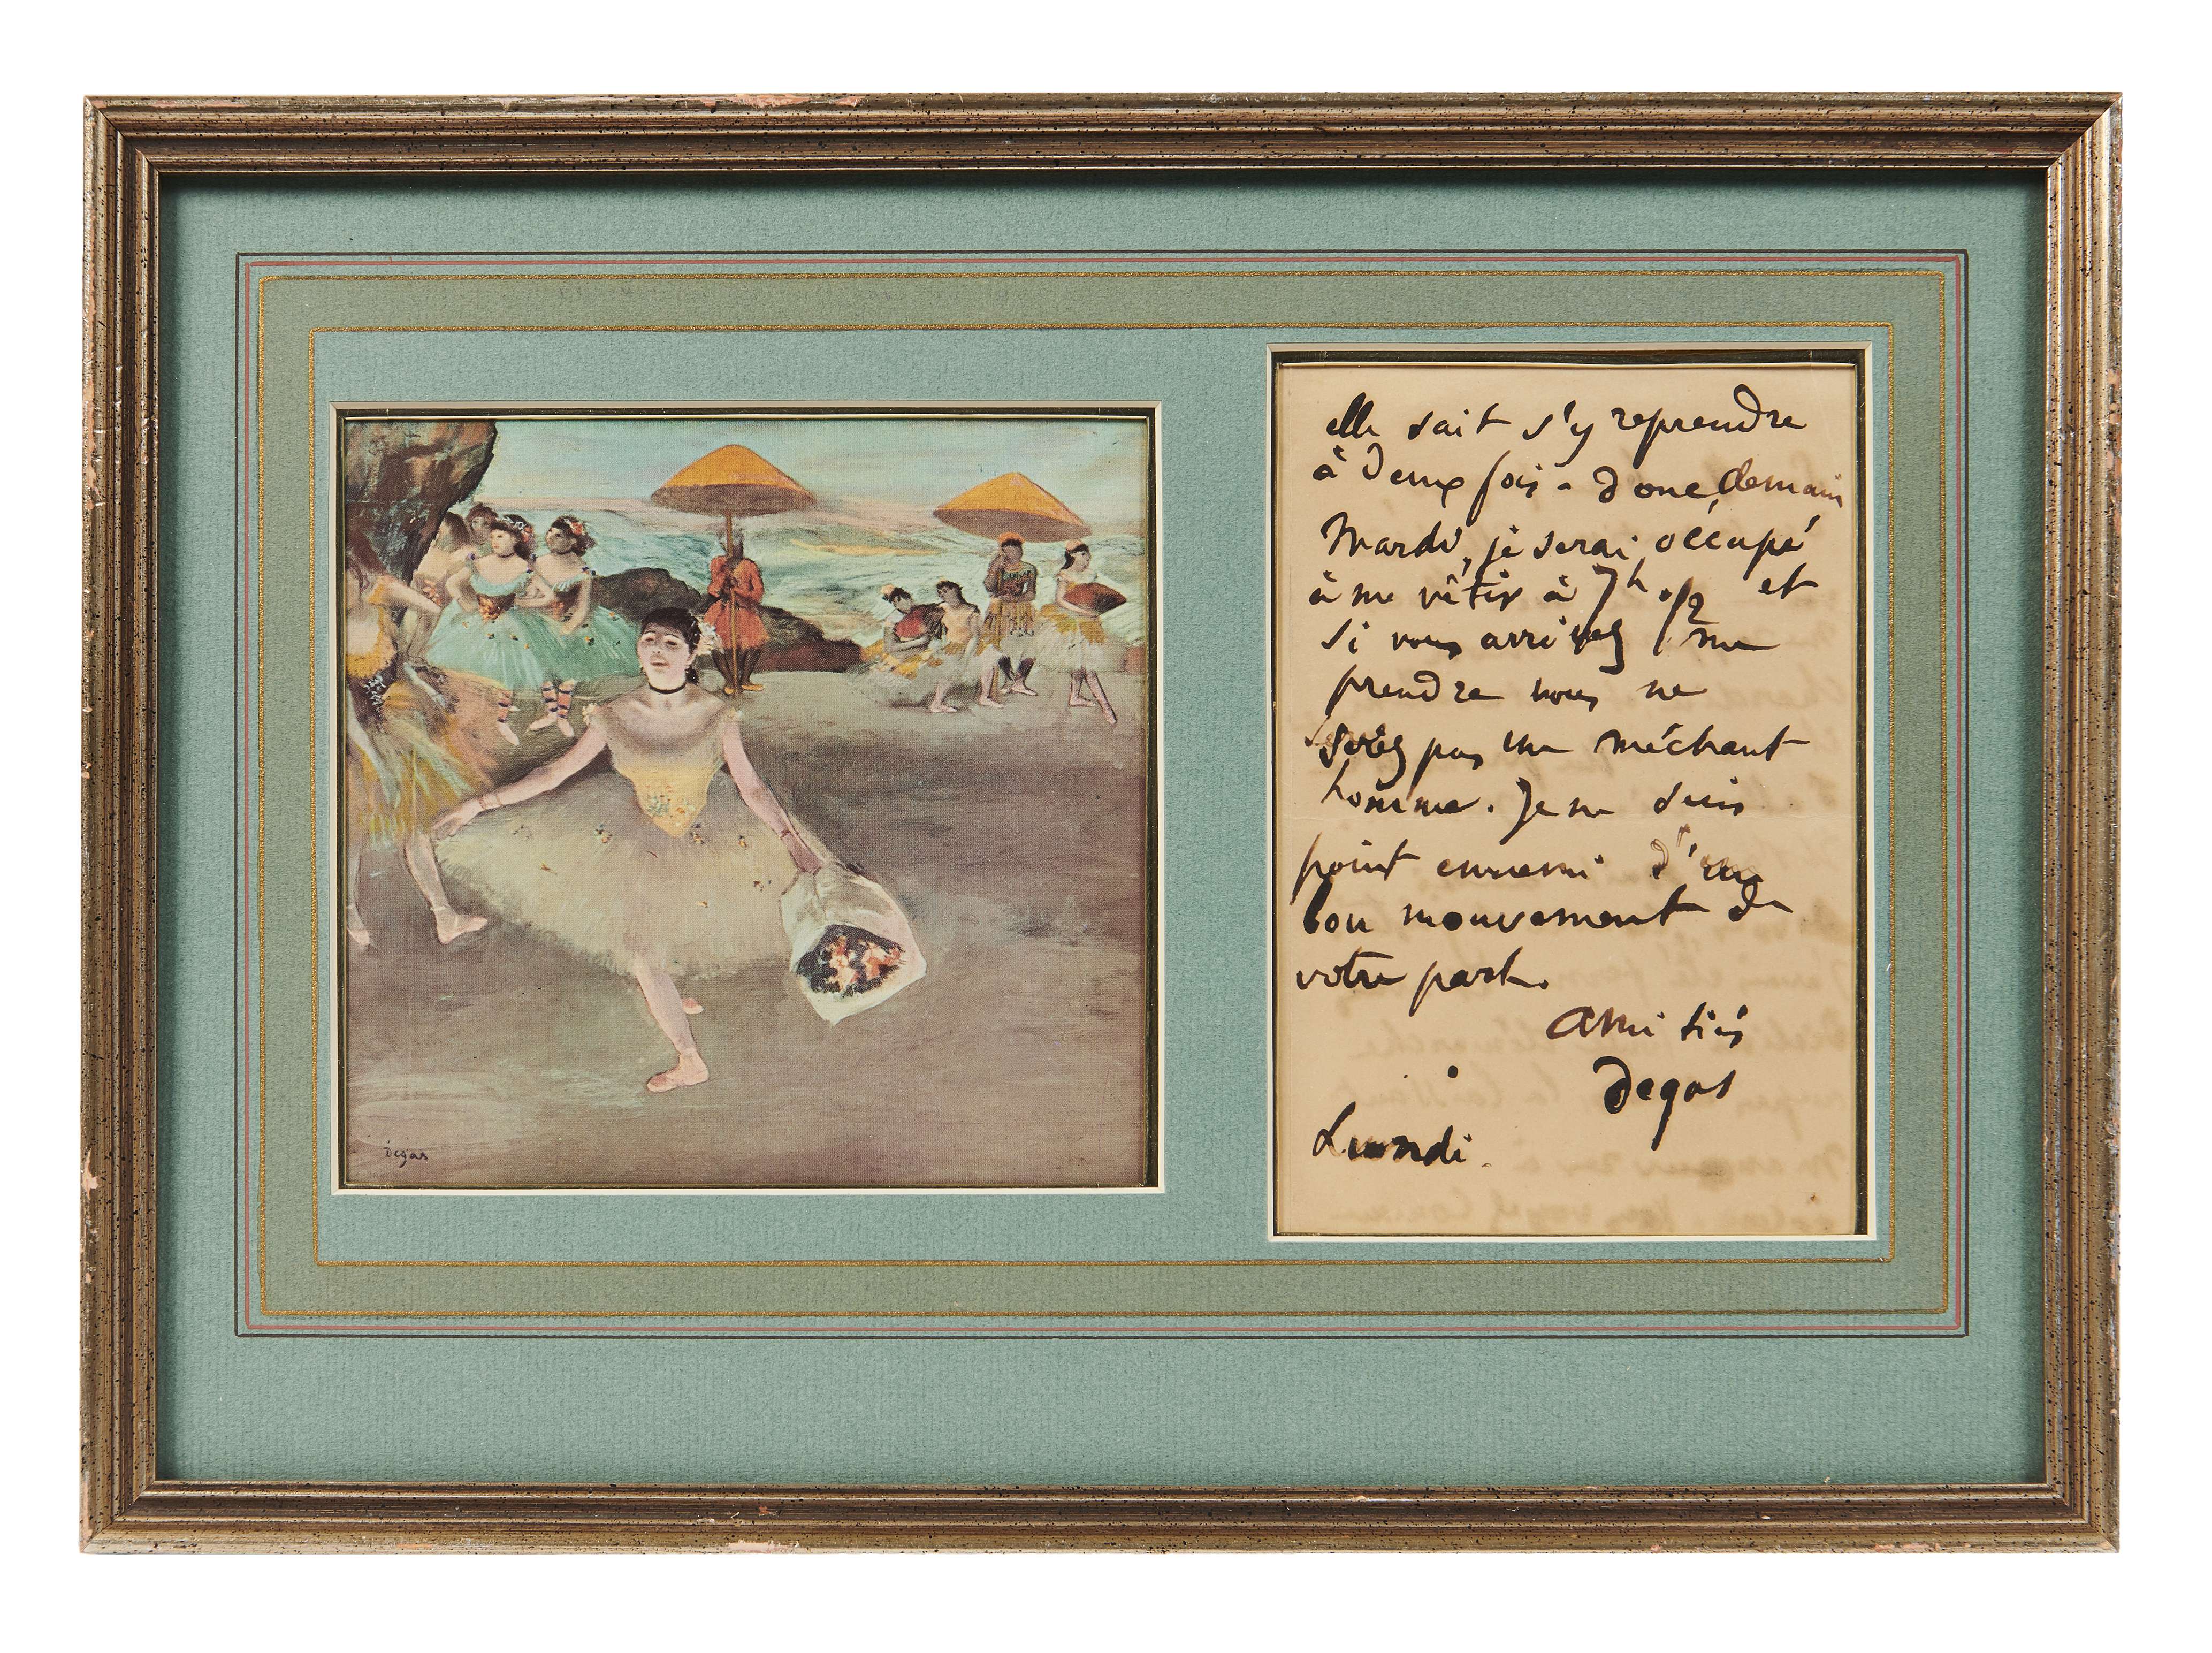 Degas
elle sait s'y reprendre
à deux fois - donc, demain
Mardi, je serai occupé
à me vêtir à 7h 1/2 et
si vous arrivez me
prendre vous ne
serez pas un méchant
homme. Je ne suis
point ennemi d'un
bon mouvement de
votre part.
Amitiés
Degas
Lundi.